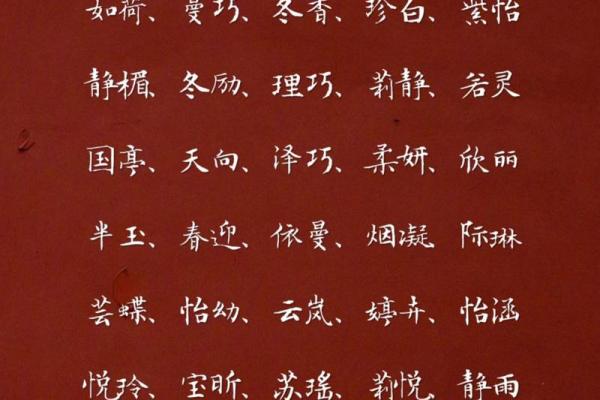 如荷、曼巧、冬香、珍白、紫怡
静楣、冬励、理巧、莉静、若灵
国亭、天向、泽巧、柔妍、欣丽
半玉、春迎、依曼、烟凝、际琳
芸蝶、怡幼、云岚、婷卉、怡涵
悦玲、宝昕、苏瑶、莉悦、静雨